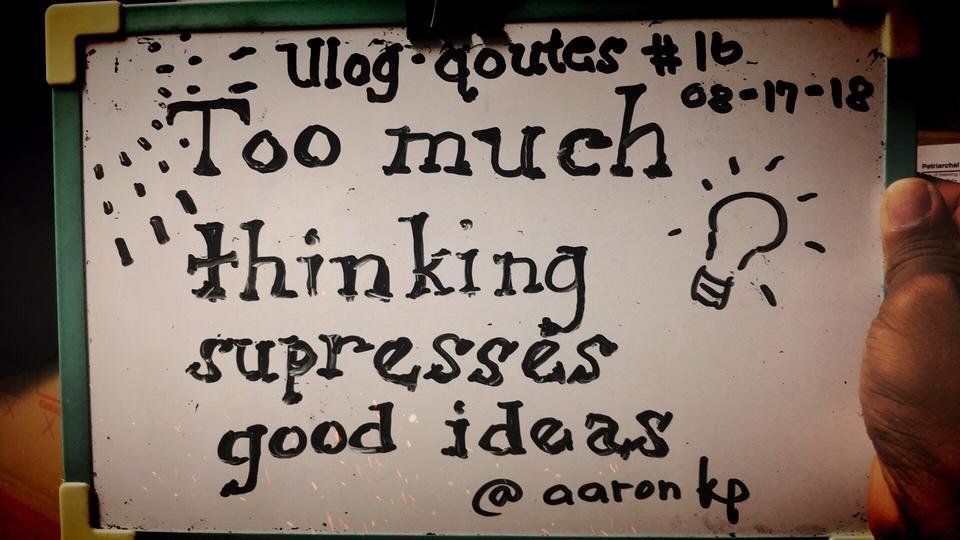 Ulog-qoutes #16
08-17-18
Too much
thinking
supresses
good ideas
@aaronkp
Patriarchal